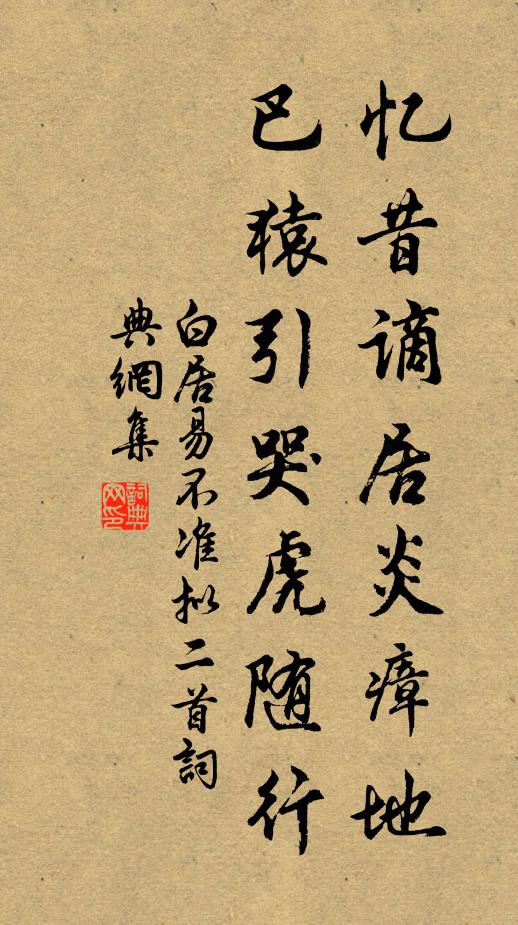 忆昔谪居炎瘴地
巴猿引哭虎随行
白居易不准拟二首詞
典網集
詞典网印